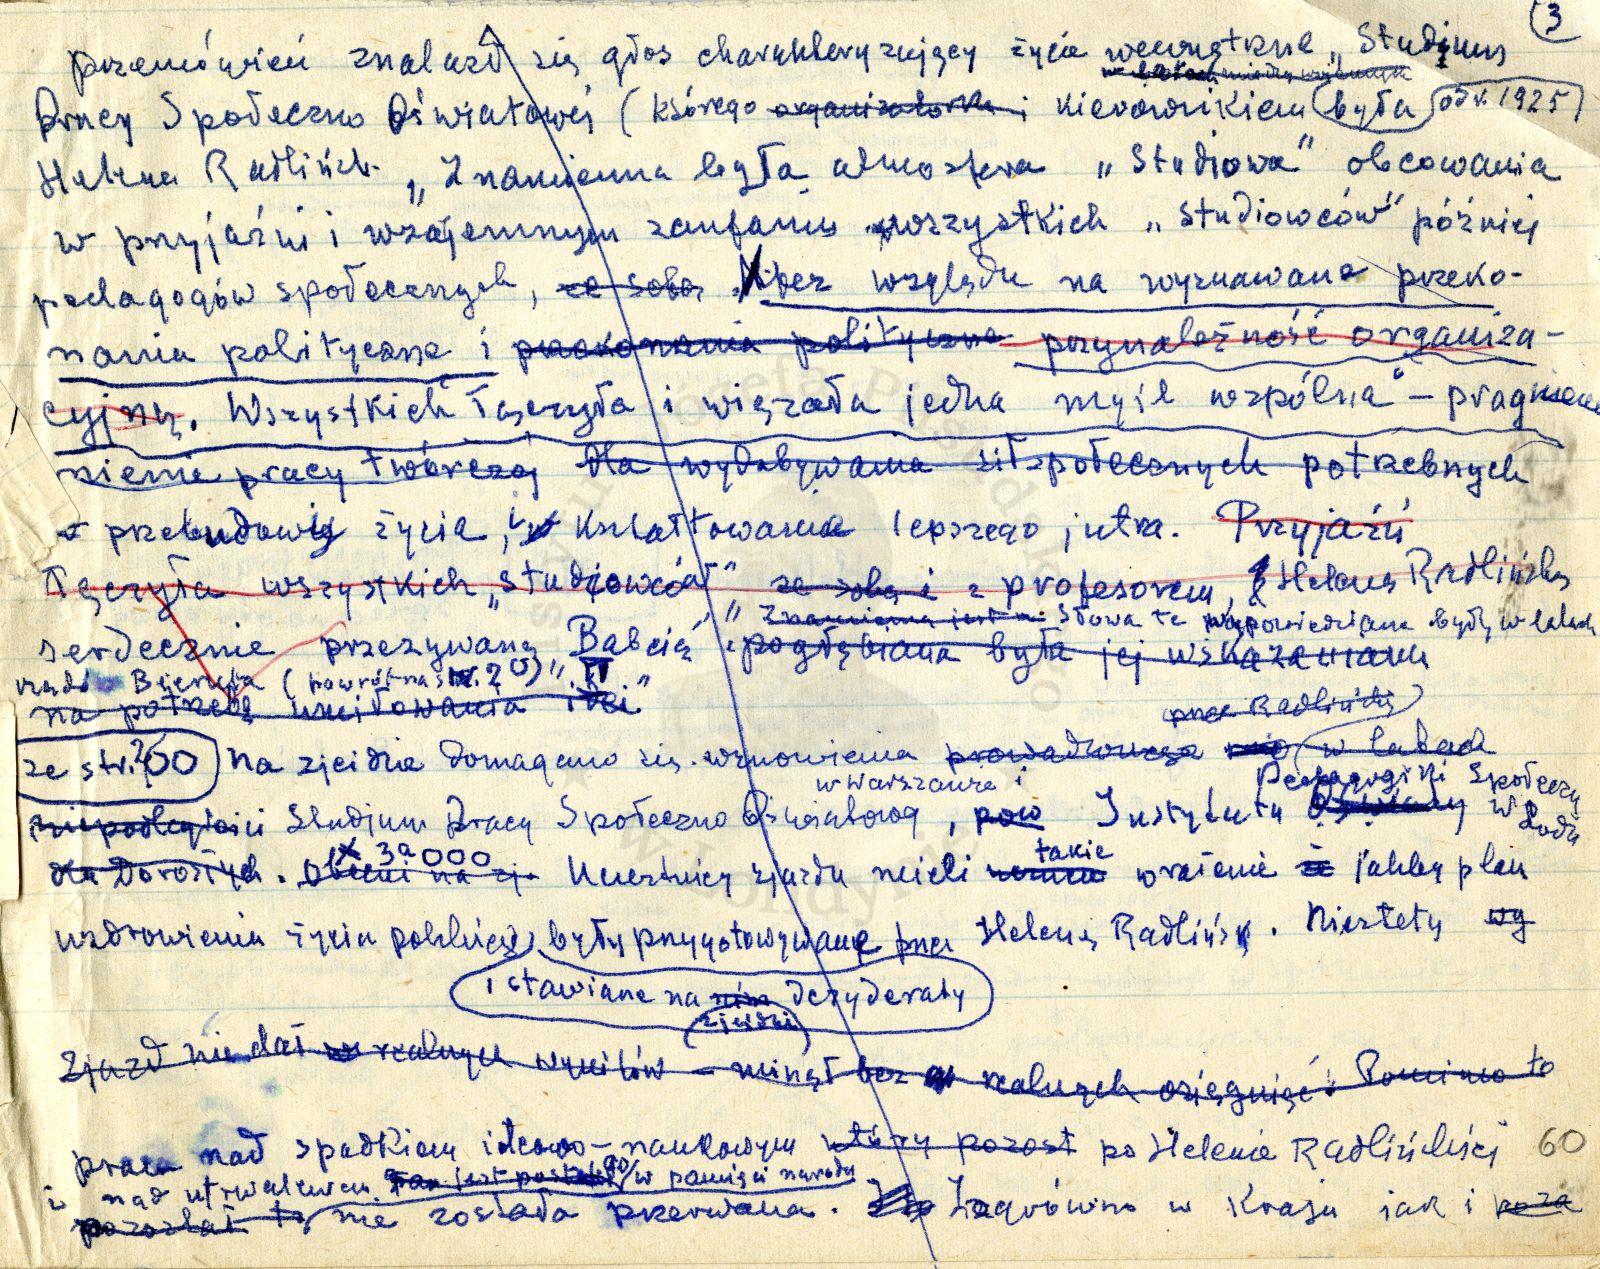 (3
przemówień znalazł się głos charakteryzujący życie wewnętrzne „Studium
w latach między wojnych
Pracy Społeczno Oświatowej (którego organizatorką i kierownikiem była od r. 1925
Helena Radlińsk. „Znamienna była atmosfera „Studiowa" obcowania
w przyjaźni i wzajemnym zaufaniu wszystkich „studiowców" później
pedagogów społecznych, ze sobą bez względu na wyznawane przeko-
nania polityczne i przekonania polityczne przynależność organiza-
cyjną. Wszystkich łączyła i wiązała jedna myśl wspólna" – pragnienie
nienie pracy twórczej dla wydobywania sił społecznych potrzebnych
przebudowie życia, i kształtowania lepszego jutra. Przyjaźń
łączyła wszystkich „studiowców" ze sobą i z profesorem, Heleną Radlińską
" Znamienna jest Słowa te wypowiedziane były w latach
serdecznie przezywaną Babcią" pogłębiana była jej wskazaniami
rządów Bieruta (powrót na str. 20)"
na potrzebę umiłowania idei"
przez Radlińską
ze str. 200 Na zjeździe domagano się wznowienia prowadzonego w latach
w Warszawie i Pedagogiki Społeczej
niepodległości Studium Pracy Społeczno Oświatowej, pow Instytutu Oświaty w Łodzi
x 3a000 takie
dla Dorosłych. Obecni na zj. Uczestnicy zjazdu mieli wrażenie że jakby plan
uzdrowienia życia polskiego były przygotowywane przez Heleną Radlińsk. Niestety wy
i stawiane na nim dezyderaty
zjeździe
Zjazd nie dał realnych wyników – minął bez realnych osiągnięć. Pomimo to
praca nad spadkiem ideowo-naukowym który pozost po Helenie Radlińskiej 60
i nad utrwaleniem go w pamięci narodu
pozostał to nie została przerwana. Zarówno w Kraju jak i poza